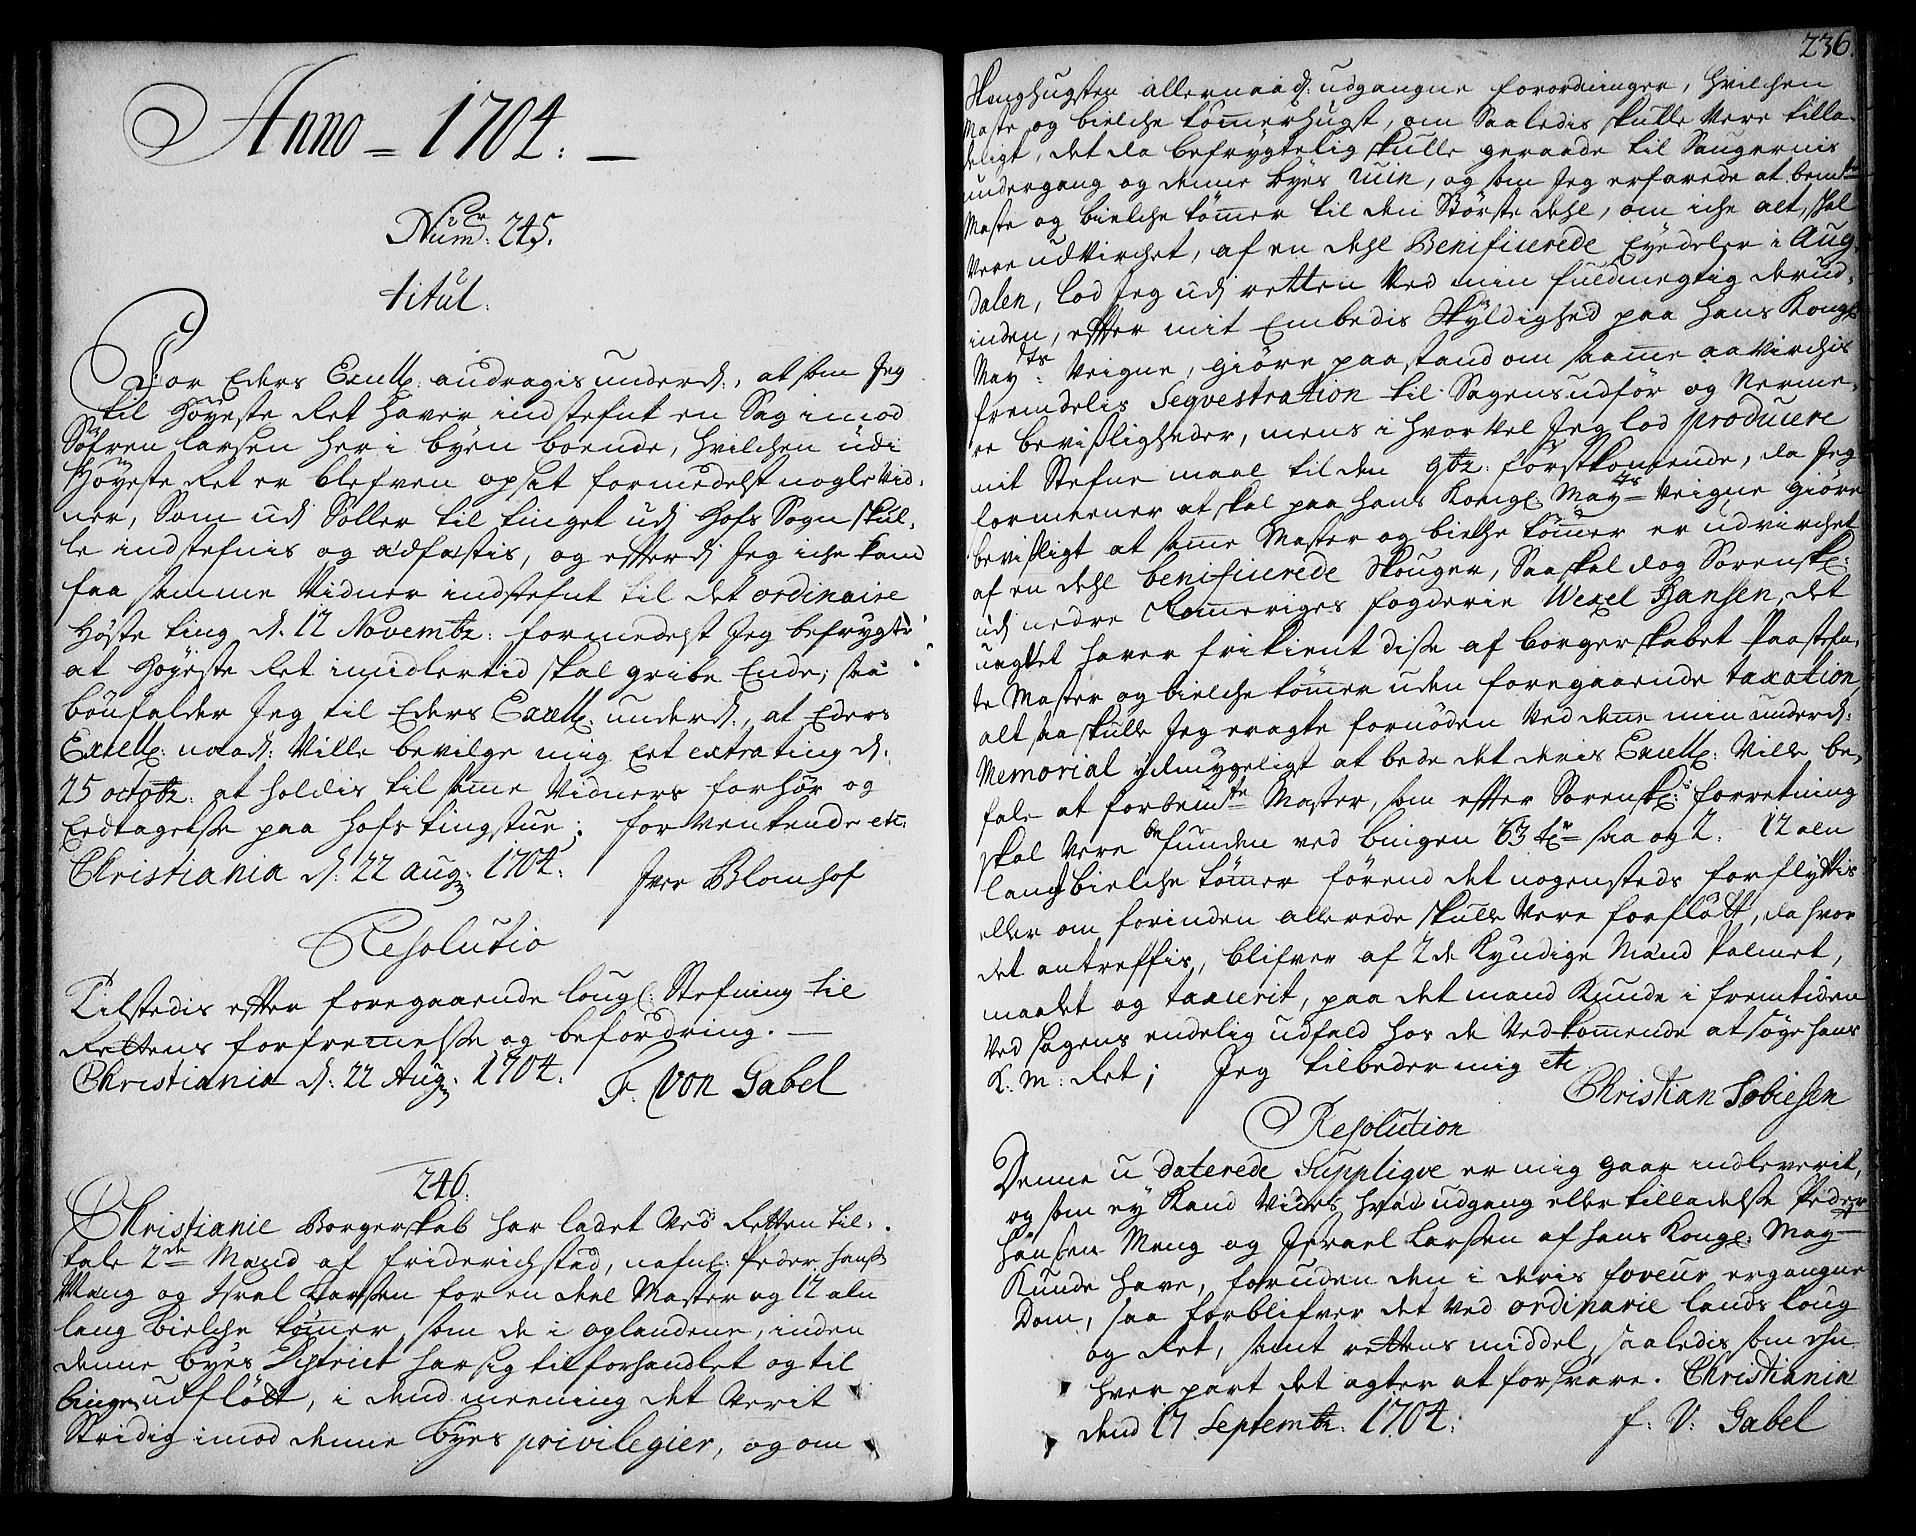 Anno = 1704: —
Num: 245.
titul.
For Eders Excell: andragis underd:, at som Jeg
til Höyeste Ret haver indstefnt en Sag imod
Söfren Larsen her i byen boende, hvilchen udi
Höyeste Ret er blefven opsat formedelst nogle Vid-
ner, Som udj Soller til tinget udj Hofs Sogn skul-
le indstefnis og adfästis, og efterdj Jeg iche kand
faa samme Vidner indstefnt til det ordinaire
Höste ting d. 12 Novembr: formedelst Jeg befrygter
at Höyeste Ret imidlertid skal gribe Ende; saa
bönfalder Jeg til Eders Excell: underd:, at Eders
Excell: naad: Ville bevilge mig Eet extra ting d:
25 octobr: at holdis til samme Vidners forhör og
Eedtagelsse paa Hofs tingstue; forVentende etc:
Christiania d: 22 aug: 1704.
Iver Blomhof
Resolutio
Tilstedis efter foregaaende lougl: Stefning til
Rettens forfremelsse og befordring. —
Christiania d: 22 Aug: 1704.
F. Von Gabel
246.
Christianiæ Borgerskab har ladet Ved Retten til-
tale 2de Mænd af Friderichstad, nafnl: Peder Hanss:
Mang og Isral Larssen for en deel Master og 12 aln
lang bielche tömer, som de i oplandene, inden
denne byes District har sig tilforhandlet og til
bingen udflödt, i dend meening det Verit
Stridig imod denne byes privilegier, og om
236.
Houghugsten allernaad: udgangne forordninger, hvilchen
Maste og bielche tömerhugst, om Saaledis skulle Vere tilla-
deligt, det da befrygtelig skulle geraade til Saugernis
undergang og denne byes ruin, og som Jeg erfarede at bemte
Maste og bielche tömer til den Störste dehl, om iche alt, skal
Vere udVirchet, af en dehl Benificerede Eyedeler i Aug
dalen, lod Jeg udj retten Ved min fuldmegtig derud-
inden, efter mit Embedis Skyldighed paa Hans Kongl:
Mayts: Veigne, giöre paastand om samme aavirchis
fremdelis Seqvestration til Sagens udför og Nerme-
re bevisligheder, mens i hvorVel Jeg lod producere
mit Stefne maal til den 9br: förstkomende, da Jeg
formeener at skal paa Hans Kongl: Mayts Veigne giöre
bevisligt at same Master og bielche tömer er udvirchet
af en dehl benificerede Skouger, Saa skal dog Sorenskr:
udj nedre Romeriges fogderie Wexel Hansen, det
uagtet haver frikient disse af borgerskabet Paastefn-
te Master og bielche tömer uden foregaaende taxation,
alt saa skulle Jeg eragte fornöden Ved denne min underd:
Memorial ydmygeligt at bede det deris Excell: Ville be-
fale at forbemte Master, som efter Sorenskr:s forretning
skal Vere befunden ved bingen 63 tr saa og 2. 12 aln
lang bielche tömer förend det nogensteds forflyttis
eller om forinden allerede skulle Vere forflödt, da hvor
det antreffis, blifver af 2de Kyndige Mænd Palmet,
maalet og taxerit, paa det mand Kunde i fremtiden
Ved sagens endelig udfald hos de Vedkomende at söge Hans
K: M: Ret; Jeg tilbeder mig etc
Christian Tobiesen
Resolution
Denne u daterede Suppliqve er mig gaar indleverit,
og som ey Kand Vides hvad udgang eller tilladelsse Peder
Hanssen Meng og Israel Larssen af Hans Kongl: Mayts
Kunde have, foruden den i deris faveur ergangne
Dom, saa forblifver det Ved ordinarie lands loug
og Ret, samt rettens middel, saaledis som enh
hver part det agter at forsvare. Christiania
dend 17 Septembr: 1704:
f: V: Gabel